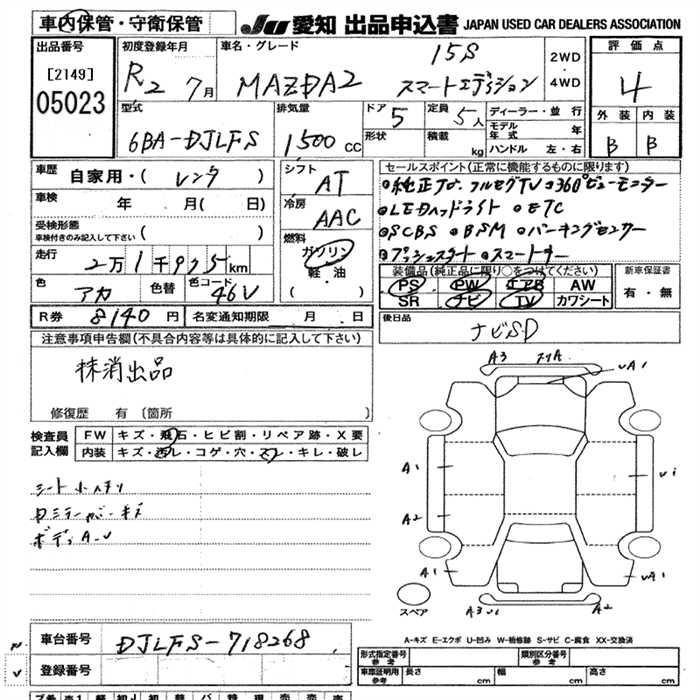 車内保管・守衛保管
JU 愛知 出品申込書 JAPAN USED CAR DEALERS ASSOCIATION
出品番号
[2149]
05023
初度登録年月
R2 7月
車名・グレード
MAZDA2
15S
スマートエディション
2WD
4WD
評価点
4
外装 内装
B B
型式
6BA-DJLFS
排気量
1500CC
ドア 5
形状
定員 5人
積載 kg
ディーラー・並行
モデル年式 年
ハンドル 左・右
車歴
自家用・( レンタ )
車検 年 月( 日)
受検形態
車検付きのみ記入して下さい ( )
走行
2万1千925km
色 アカ
色替
色コード 46V
シフト AT
冷房 AAC
燃料
ガソリン
軽・油
( )
セールスポイント(正常に機能するものに限ります)
純正ナビ フルセグTV 360°ビューモニター
LEDヘッドライト ETC
SCBS BSM パーキングセンサー
プッシュスタート スマートキー
装備品(純正品に限り○をつけてください)
PS PW エアB AW
SR ナビ TV カワシート
新車保証書
有・無
R券 8140円
名変通知期限 月 日
後日品
ナビSD
注意事項申告欄(不具合内容等は具体的に記入して下さい)
抹消出品
修復歴 有 〔箇所
検査員
記入欄
FW キズ・飛石・ヒビ割・リペア跡・X要
内装 キズ・汚レ・コゲ・穴・スレ・キレ・破レ
シート
キズ
ボディA-U
A3
UA1
A1
A2
A1
U1
UA1
A3 U1
A2
スペア
A-キズ E-エクボ U-凹み W-補修跡 S-サビ C-腐食 XX-交換済
車台番号 DJLFS-718268
登録番号
形式指定番号
参考
類別区分番号
参考
車庫証明用
参考
長さ cm
幅 cm
高さ cm